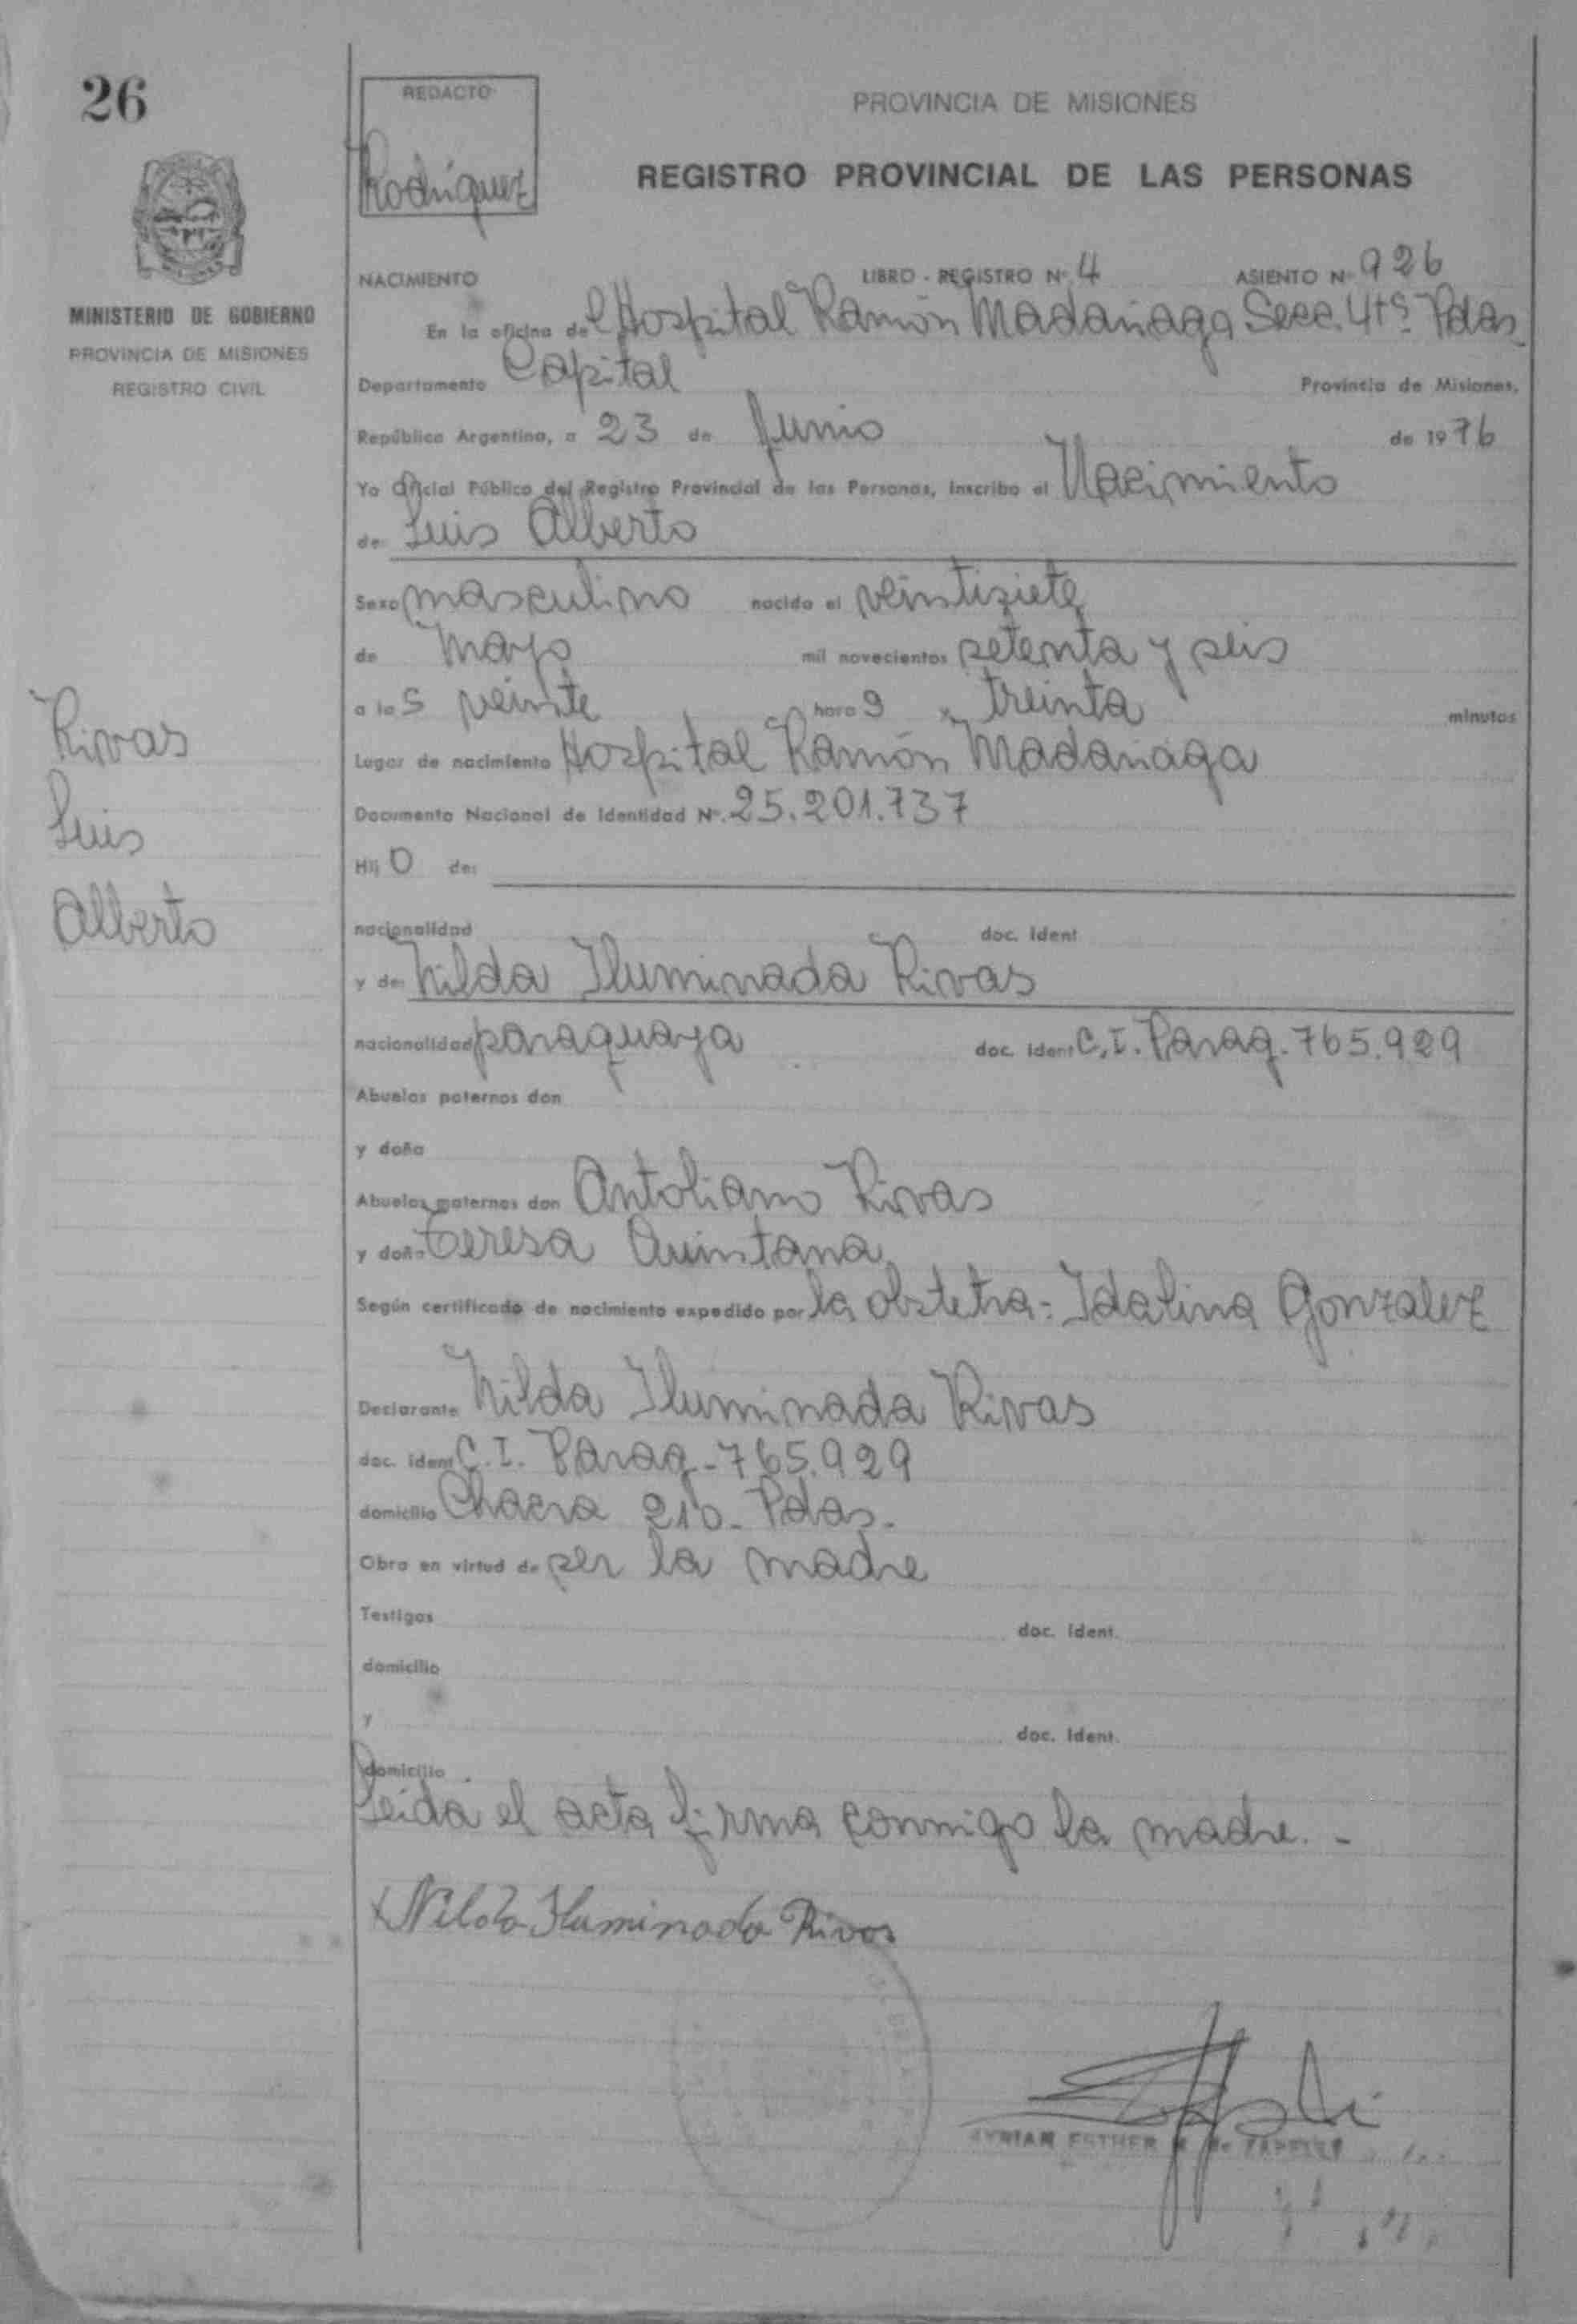 26
REDACTO
Rodriguez
PROVINCIA DE MISIONES
REGISTRO PROVINCIAL DE LAS PERSONAS
MINISTERIO DE GOBIERNO
PROVINCIA DE MISIONES
REGISTRO CIVIL
NACIMIENTO LIBRO - REGISTRO Nº 4 ASIENTO Nº 926
En la oficina del Hospital Ramón Madariaga Secc. 4tª Pdas
Departamento Capital Provincia de Misiones,
República Argentina, a 23 de Junio de 1976
Yo Oficial Público del Registro Provincial de las Personas, inscribo el Nacimiento
de: Luis Alberto
Sexo masculino nacido el veintisiete
de Mayo mil novecientos setenta y seis
a las veinte horas y treinta minutos
Lugar de nacimiento Hospital Ramón Madariaga
Documento Nacional de Identidad Nº. 25.201.737
Hijo de:
nacionalidad doc. ident
y de: Nilda Iluminada Rivas
nacionalidad paraguaya doc. ident C.I. Parag. 765.929
Abuelos paternos don
y doña
Abuelos maternos don Antoliano Rivas
y doña Teresa Quintana
Según certificado de nacimiento expedido por la obstetra: Idalina Gonzalez
Declarante Nilda Iluminada Rivas
doc. ident C.I. Parag - 765.929
domicilio Chacra 210 - Pdas.
Obra en virtud de ser la madre
Testigos doc. ident.
domicilio
y doc. ident.
domicilio
Leida el acta firma conmigo la madre. -
Rivas
Luis
Alberto
x Nilda Iluminada Rivas
ESTHER